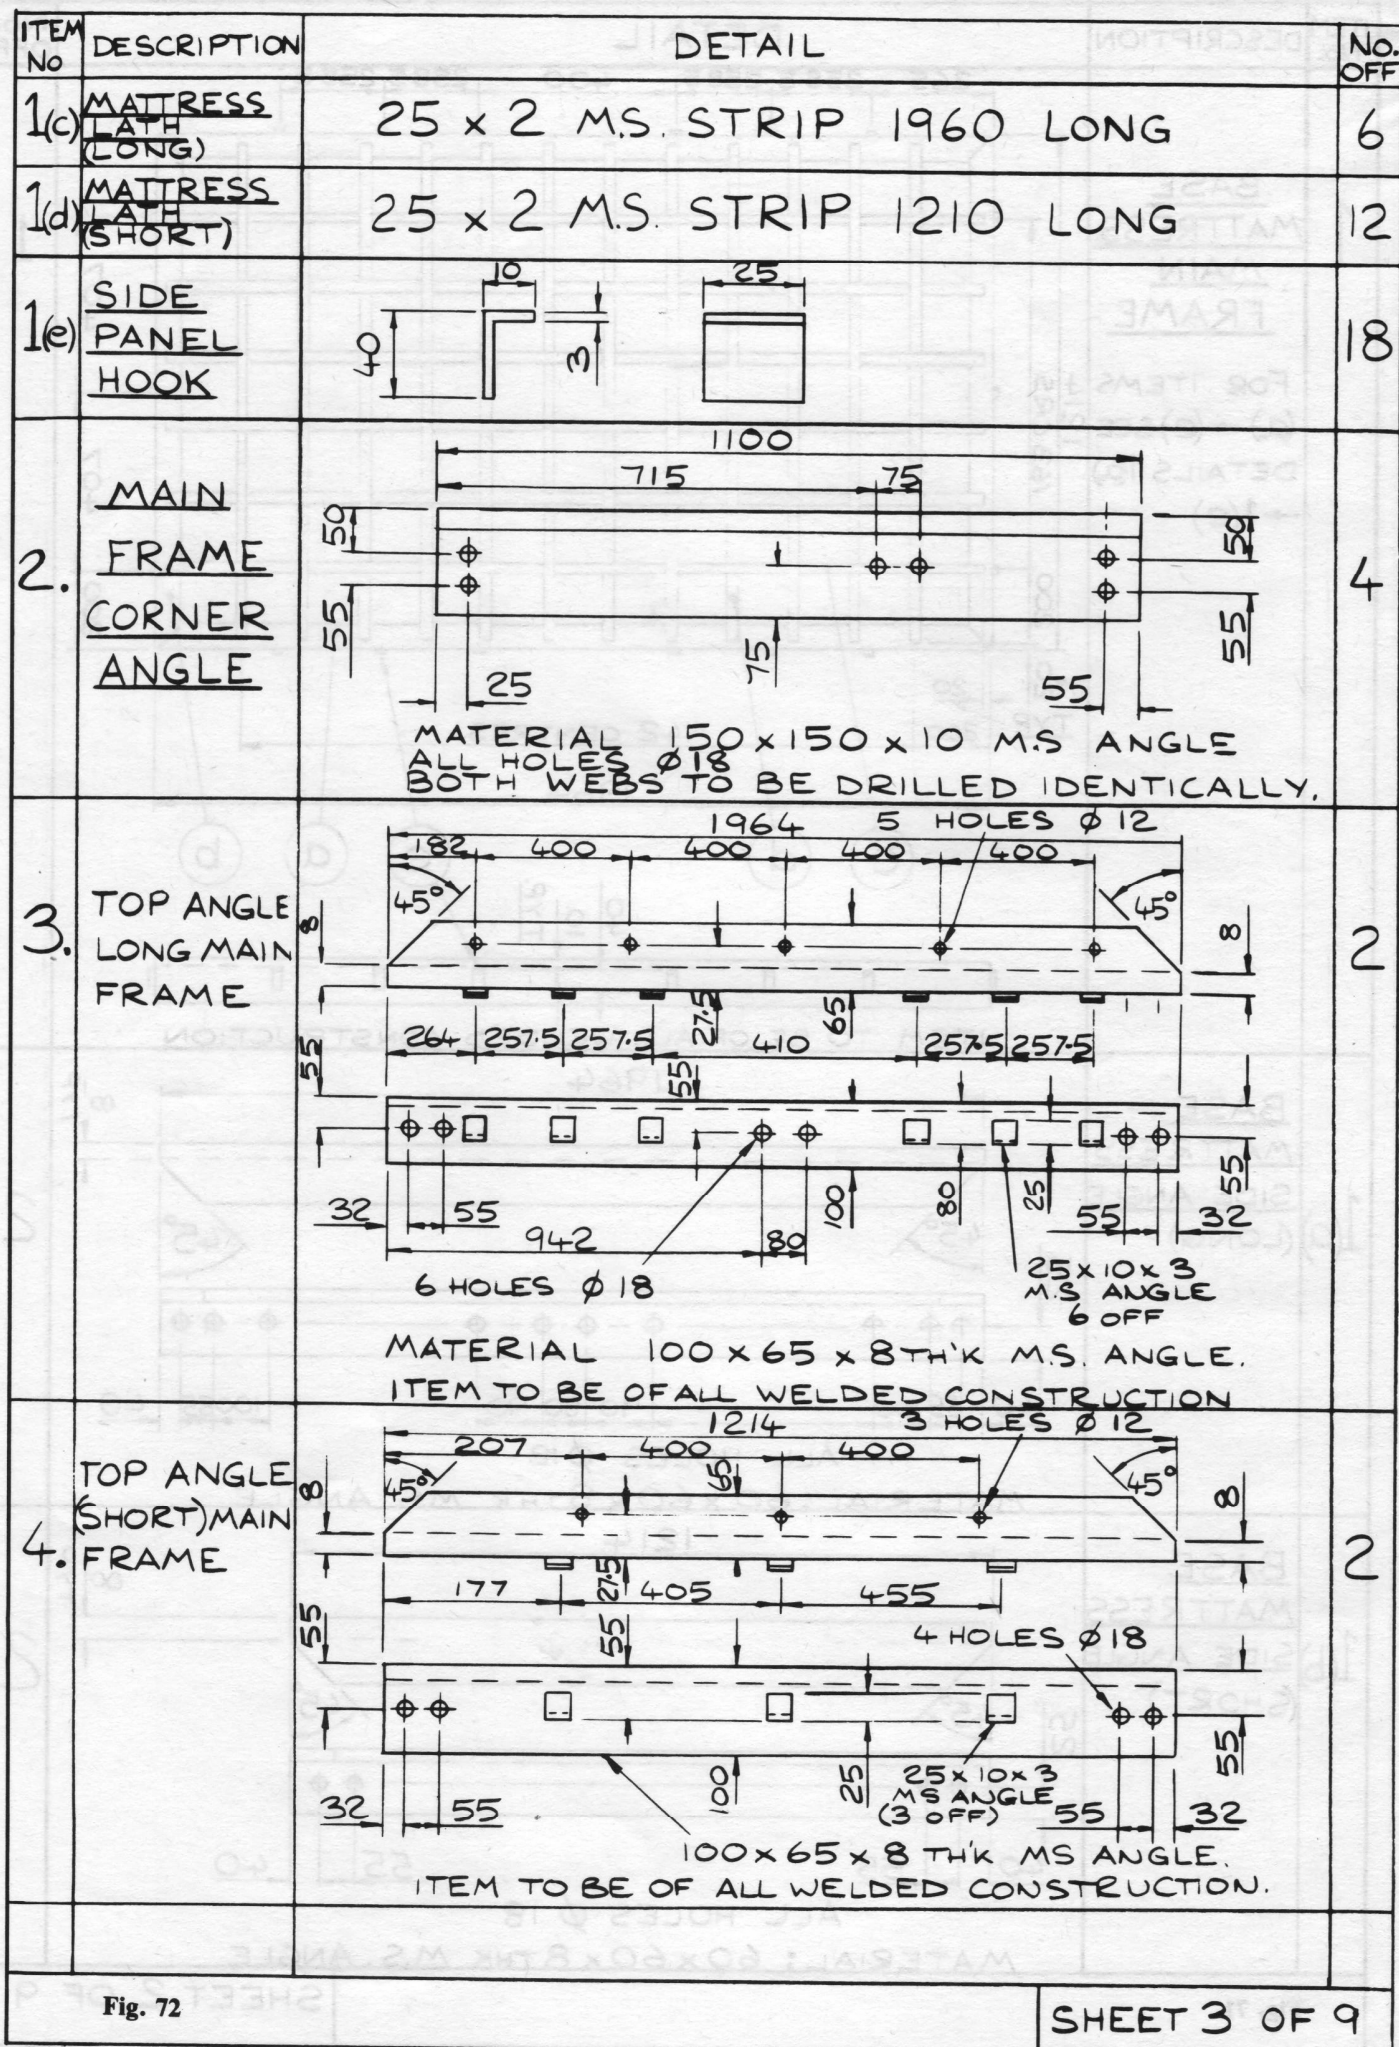 ITEM No DESCRIPTION DETAIL No. OFF
1(c) MATTRESS LATH (LONG) 25 x 2 M.S. STRIP 1960 LONG 6
1(d) MATTRESS LATH (SHORT) 25 x 2 M.S. STRIP 1210 LONG 12
1(e) SIDE PANEL HOOK 18
10 25
40 3
2. MAIN FRAME CORNER ANGLE 4
1100
715 75
50 50
55 75 55
25 55
MATERIAL 150 x 150 x 10 M.S ANGLE
ALL HOLES Ø 18
BOTH WEBS TO BE DRILLED IDENTICALLY.
3. TOP ANGLE LONG MAIN FRAME 2
1964 5 HOLES Ø 12
182 400 400 400 400
45° 45°
8 8
27.5 65
264 257.5 257.5 410 257.5 257.5
55 55
100 80 25 55
32 55 55 32
942 80
6 HOLES Ø 18
25 x 10 x 3
M.S ANGLE
6 OFF
MATERIAL 100 x 65 x 8 TH'K M.S. ANGLE.
ITEM TO BE OF ALL WELDED CONSTRUCTION
4. TOP ANGLE (SHORT) MAIN FRAME 2
1214 3 HOLES Ø 12
207 400 400
45° 65 45°
8 8
27.5
177 405 455
55 55
4 HOLES Ø 18
100 25 55
25 x 10 x 3
MS ANGLE
(3 OFF)
32 55 55 32
100 x 65 x 8 TH'K MS ANGLE.
ITEM TO BE OF ALL WELDED CONSTRUCTION.
Fig. 72
SHEET 3 OF 9